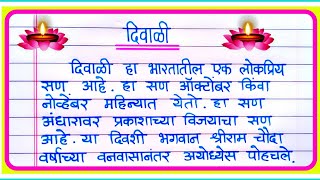 दिवाळी
दिवाळी हा भारतातील एक लोकप्रिय
सण आहे. हा सण ऑक्टोंबर किंवा
नोव्हेंबर महिन्यात येतो. हा सण
अंधारावर प्रकाशाच्या विजयाचा सण
आहे. या दिवशी भगवान श्रीराम चौदा
वर्षाच्या वनवासानंतर अयोध्येस पोहचले.